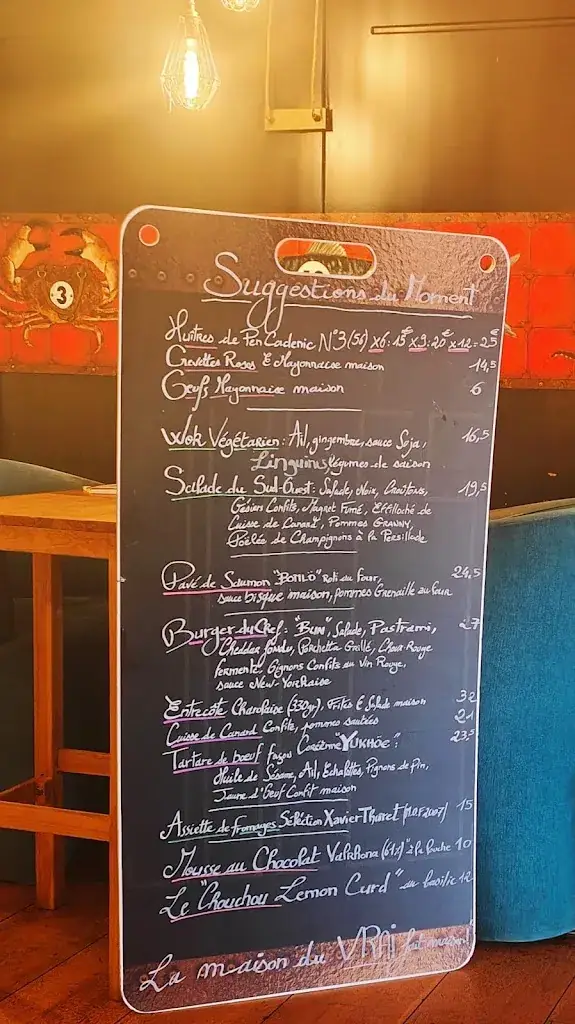 3
Suggestions du Moment
Huîtres de Pen Cadenic N°3 (56) x6:15€ x9:20€ x12=25€
Crevettes Roses & Mayonnaise maison 14,5
Oeufs Mayonnaise maison 6
Wok Végétarien: Ail, gingembre, sauce Soja, 16,5
Linguine, légumes de saison
Salade du Sud-Ouest: Salade, Noix, Croûtons, 19,5
Gésiers Confits, Magret Fumé, Effiloché de
Cuisse de Canard, Pommes GRANNY,
Poêlée de Champignons à la Persillade
Pavé de Saumon "BÖMLÖ" Roti au four, 24,5
sauce bisque maison, pommes Grenaille au four
Burger du Chef: "Bun", Salade, Pastrami, 27
Cheddar fondu, Porchetta Grillé, Choux Rouge
fermenté, Oignons Confits au Vin Rouge,
sauce New-Yorkaise
Entrecôte Charolaise (330gr), Frites & Salade maison 32
Cuisse de Canard Confite, pommes sautées 21
Tartare de boeuf façon Coréenne "YUKHOE": 23,5
Huile de Sésame, Ail, Echalottes, Pignons de Pin,
Jaune d'Oeuf Confit maison
Assiette de fromages Sélection Xavier Thuret (M.O.F 2007) 15
Mousse au Chocolat Valrhona (61%) "à la louche 10
Le "Chouchou" Lemon Curd" au basilic 12
La maison du VRAI fait maison!